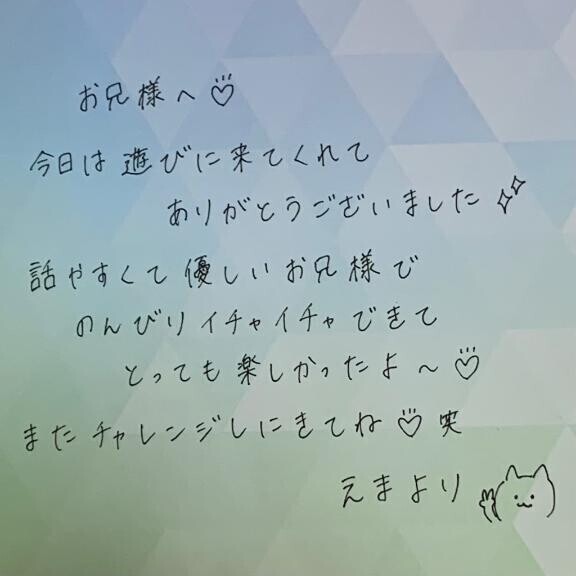 お兄様へ♡
今日は遊びに来てくれて
ありがとうございました✨
話やすくて優しいお兄様で
のんびりイチャイチャできて
とっても楽しかったよ〜♡
またチャレンジしにきてね♡笑
えまより